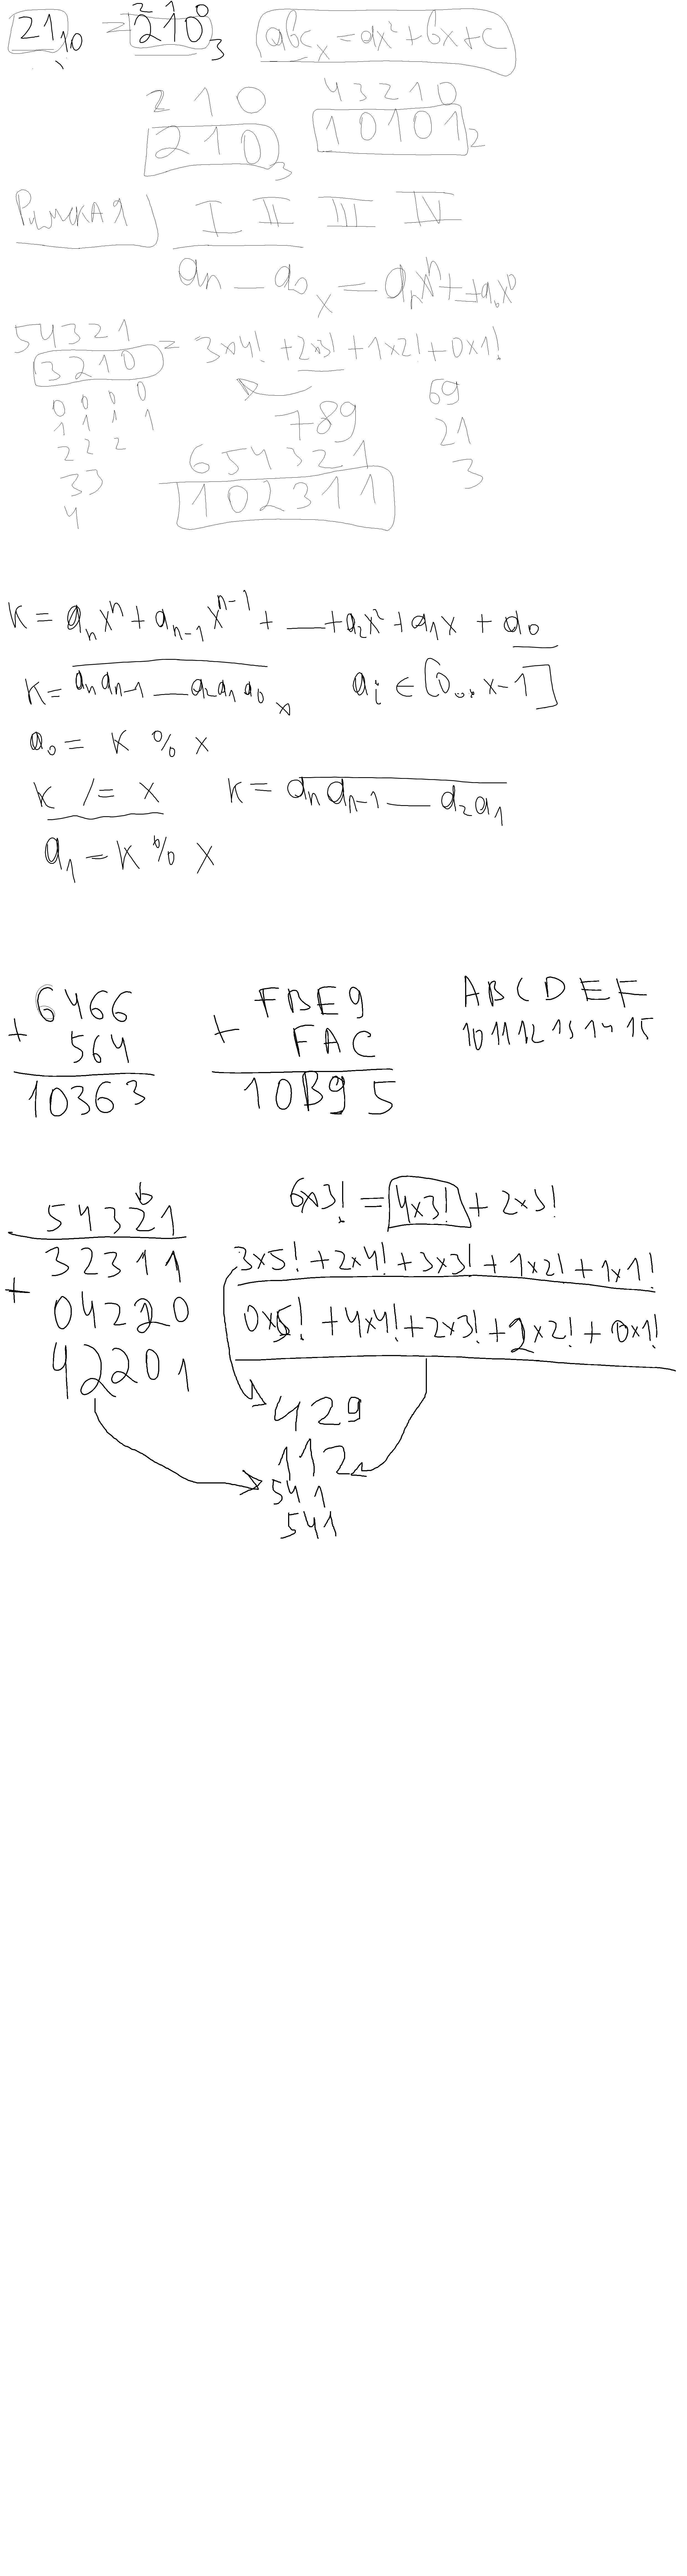 21₁₀ = 210₃ abcₓ = ax² + bx + c
2 1 0
2 1 0
210₃
4 3 2 1 0
10101₂
Римская I II III IV
aₙ — a₀ ₓ = aₙxⁿ + — + a₀x⁰
5 4 3 2 1
3 2 1 0 = 3×4! + 2×3! + 1×2! + 0×1!
0 0 0 0
1 1 1 1
2 2 2
3 3
4
69
21
3
789
6 5 4 3 2 1
1 0 2 3 1 1
K = aₙxⁿ + aₙ₋₁xⁿ⁻¹ + — + a₂x² + a₁x + a₀
K = aₙaₙ₋₁ — a₂a₁a₀ ₓ aᵢ ∈ [0..x-1]
a₀ = K % x
K /= x K = aₙaₙ₋₁ — a₂a₁
a₁ = K % x
6466
+ 564
10363
FBE9
+ FAC
10B95
A B C D E F
10 11 12 13 14 15
5 4 3 2 1
3 2 3 1 1
+ 0 4 2 2 0
4 2 2 0 1
6×3! = 4×3! + 2×3!
3×5! + 2×4! + 3×3! + 1×2! + 1×1!
0×5! + 4×4! + 2×3! + 2×2! + 0×1!
429
112
541
541